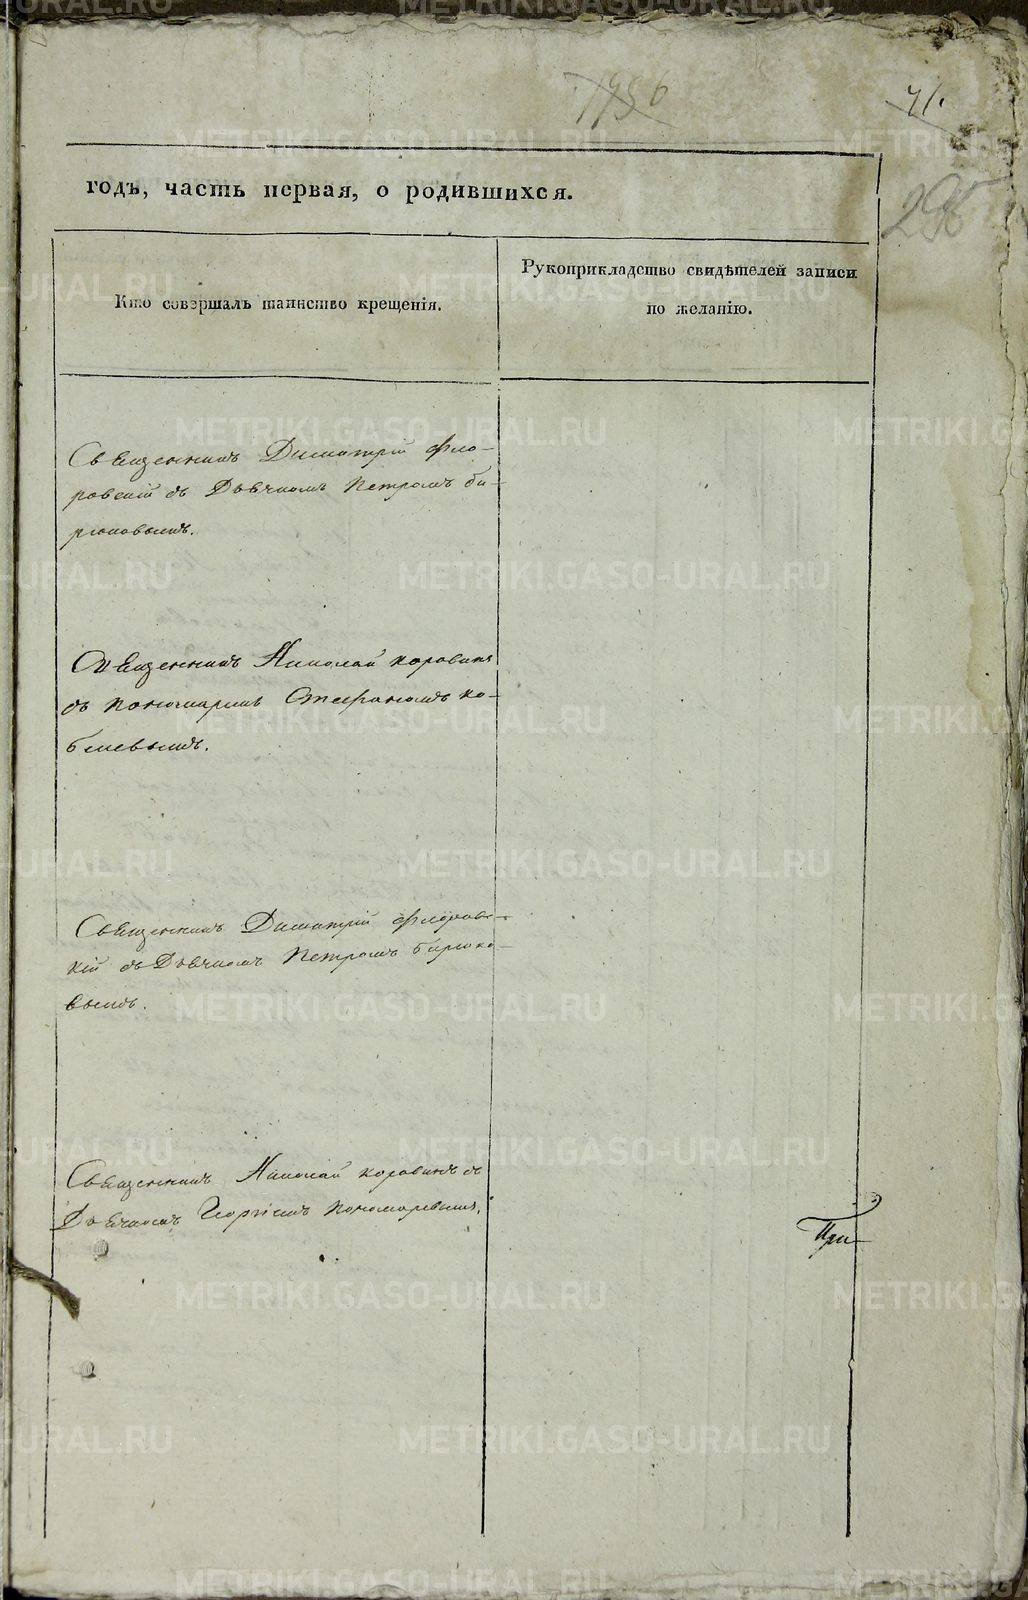 1956
41.
296
годъ, часть первая, о родившихся.
Кто совершалъ таинство крещенія.
Рукоприкладство свидѣтелей записи
по желанію.
Священникъ Димитрій Фло-
ровскій съ Дьячкомъ Петромъ Би-
рюковымъ.
Священникъ Николай Коровинъ
съ Пономаремъ Стефаномъ Ко-
белевымъ.
Священникъ Димитрій Флоровс-
кій съ Дьячкомъ Петромъ Бирюко-
вымъ.
Священникъ Николай Коровинъ съ
Дьячкомъ Георгіемъ Пономаревымъ.
При
METRIKI.GASO-URAL.RU